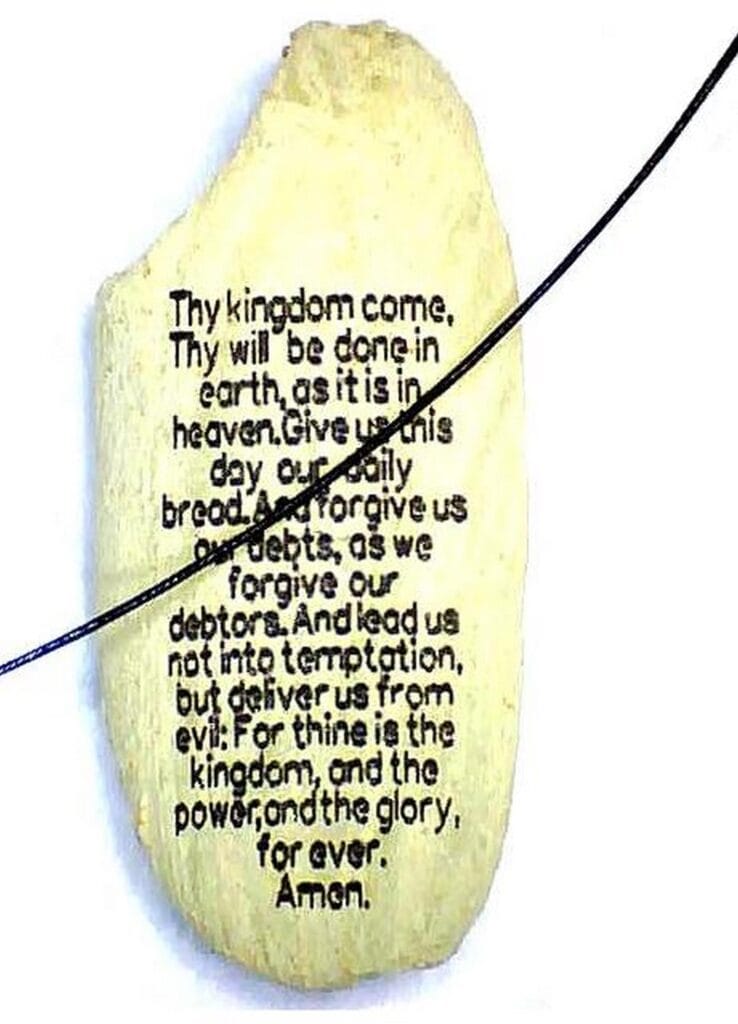 Thy kingdom come,
Thy will be done in
earth, as it is in
heaven. Give us this
day our daily
bread. And forgive us
our debts, as we
forgive our
debtors. And lead us
not into temptation,
but deliver us from
evil: For thine is the
kingdom, and the
power, and the glory,
for ever.
Amen.